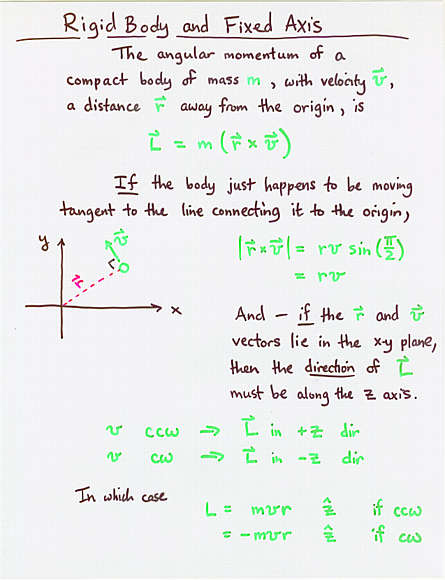 Rigid Body and Fixed Axis
The angular momentum of a
compact body of mass m, with velocity v⃗,
a distance r⃗ away from the origin, is
L⃗ = m (r⃗ × v⃗)
If the body just happens to be moving
tangent to the line connecting it to the origin,
y
v⃗
r⃗
x
|r⃗ × v⃗| = rv sin (π/2)
= rv
And — if the r⃗ and v⃗
vectors lie in the x-y plane,
then the direction of L⃗
must be along the z axis.
v ccw ⇒ L⃗ in +z dir
v cw ⇒ L⃗ in -z dir
In which case
L = mvr ẑ if ccw
= -mvr ẑ if cw